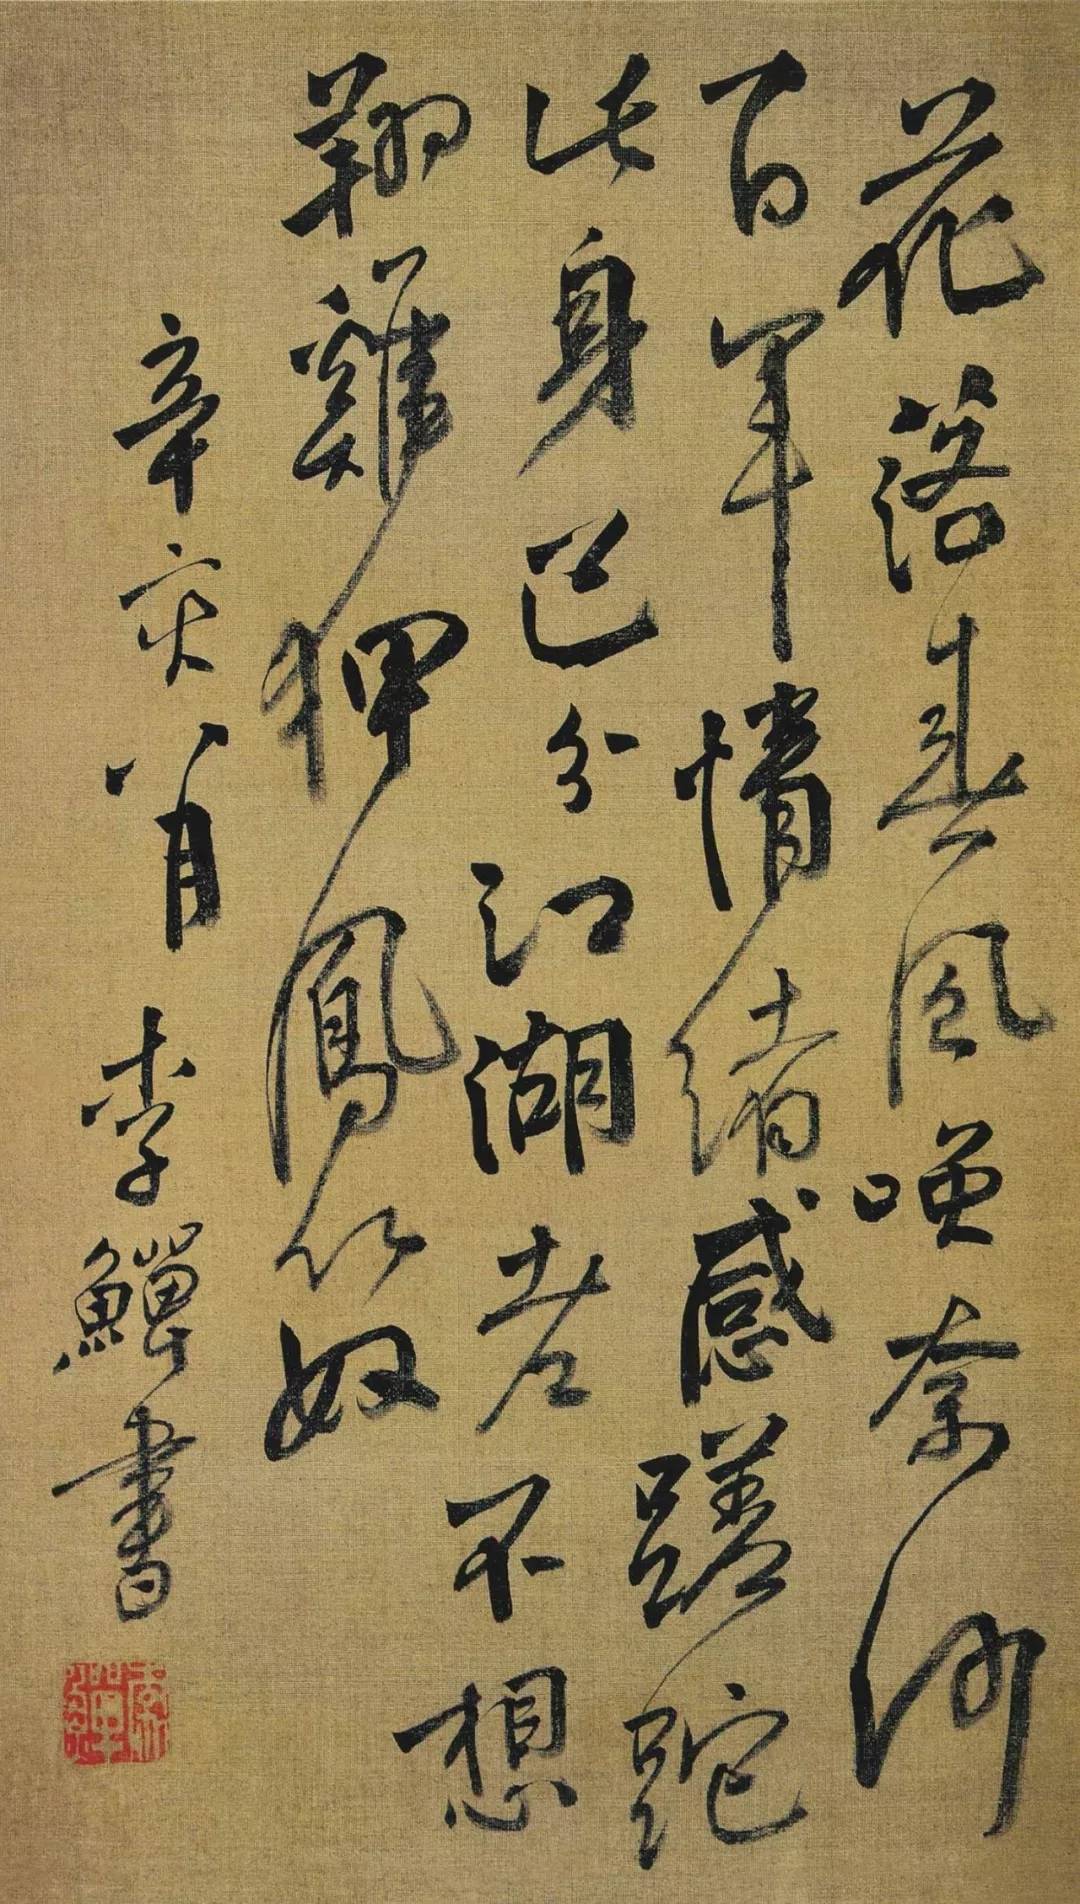 花落春風嘆奈何
百年情緒感蹉跎
此身已分江湖老不想
翔雞狎鳳
奴
辛亥八月李鱓書